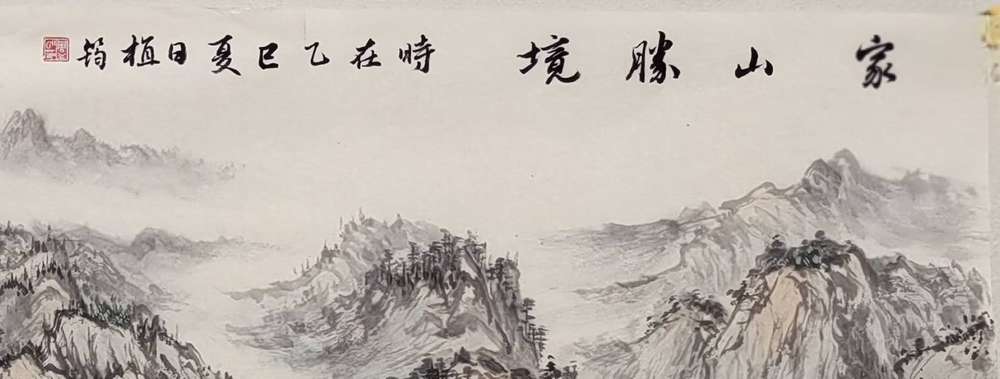 家山勝境 時在乙巳夏日植筠